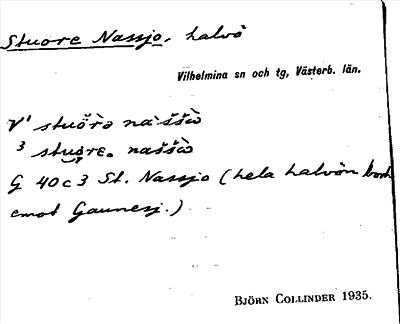 Stuore Nassjo, halvö
Vilhelmina sn och tg, Västerb. län.
V¹ stuŏ̀rə nàššò
³ stuo̭re. naššò
G 40 c 3 St. Nassjo (hela halvön bort
emot Gaunesj.)
BJÖRN COLLINDER 1935.